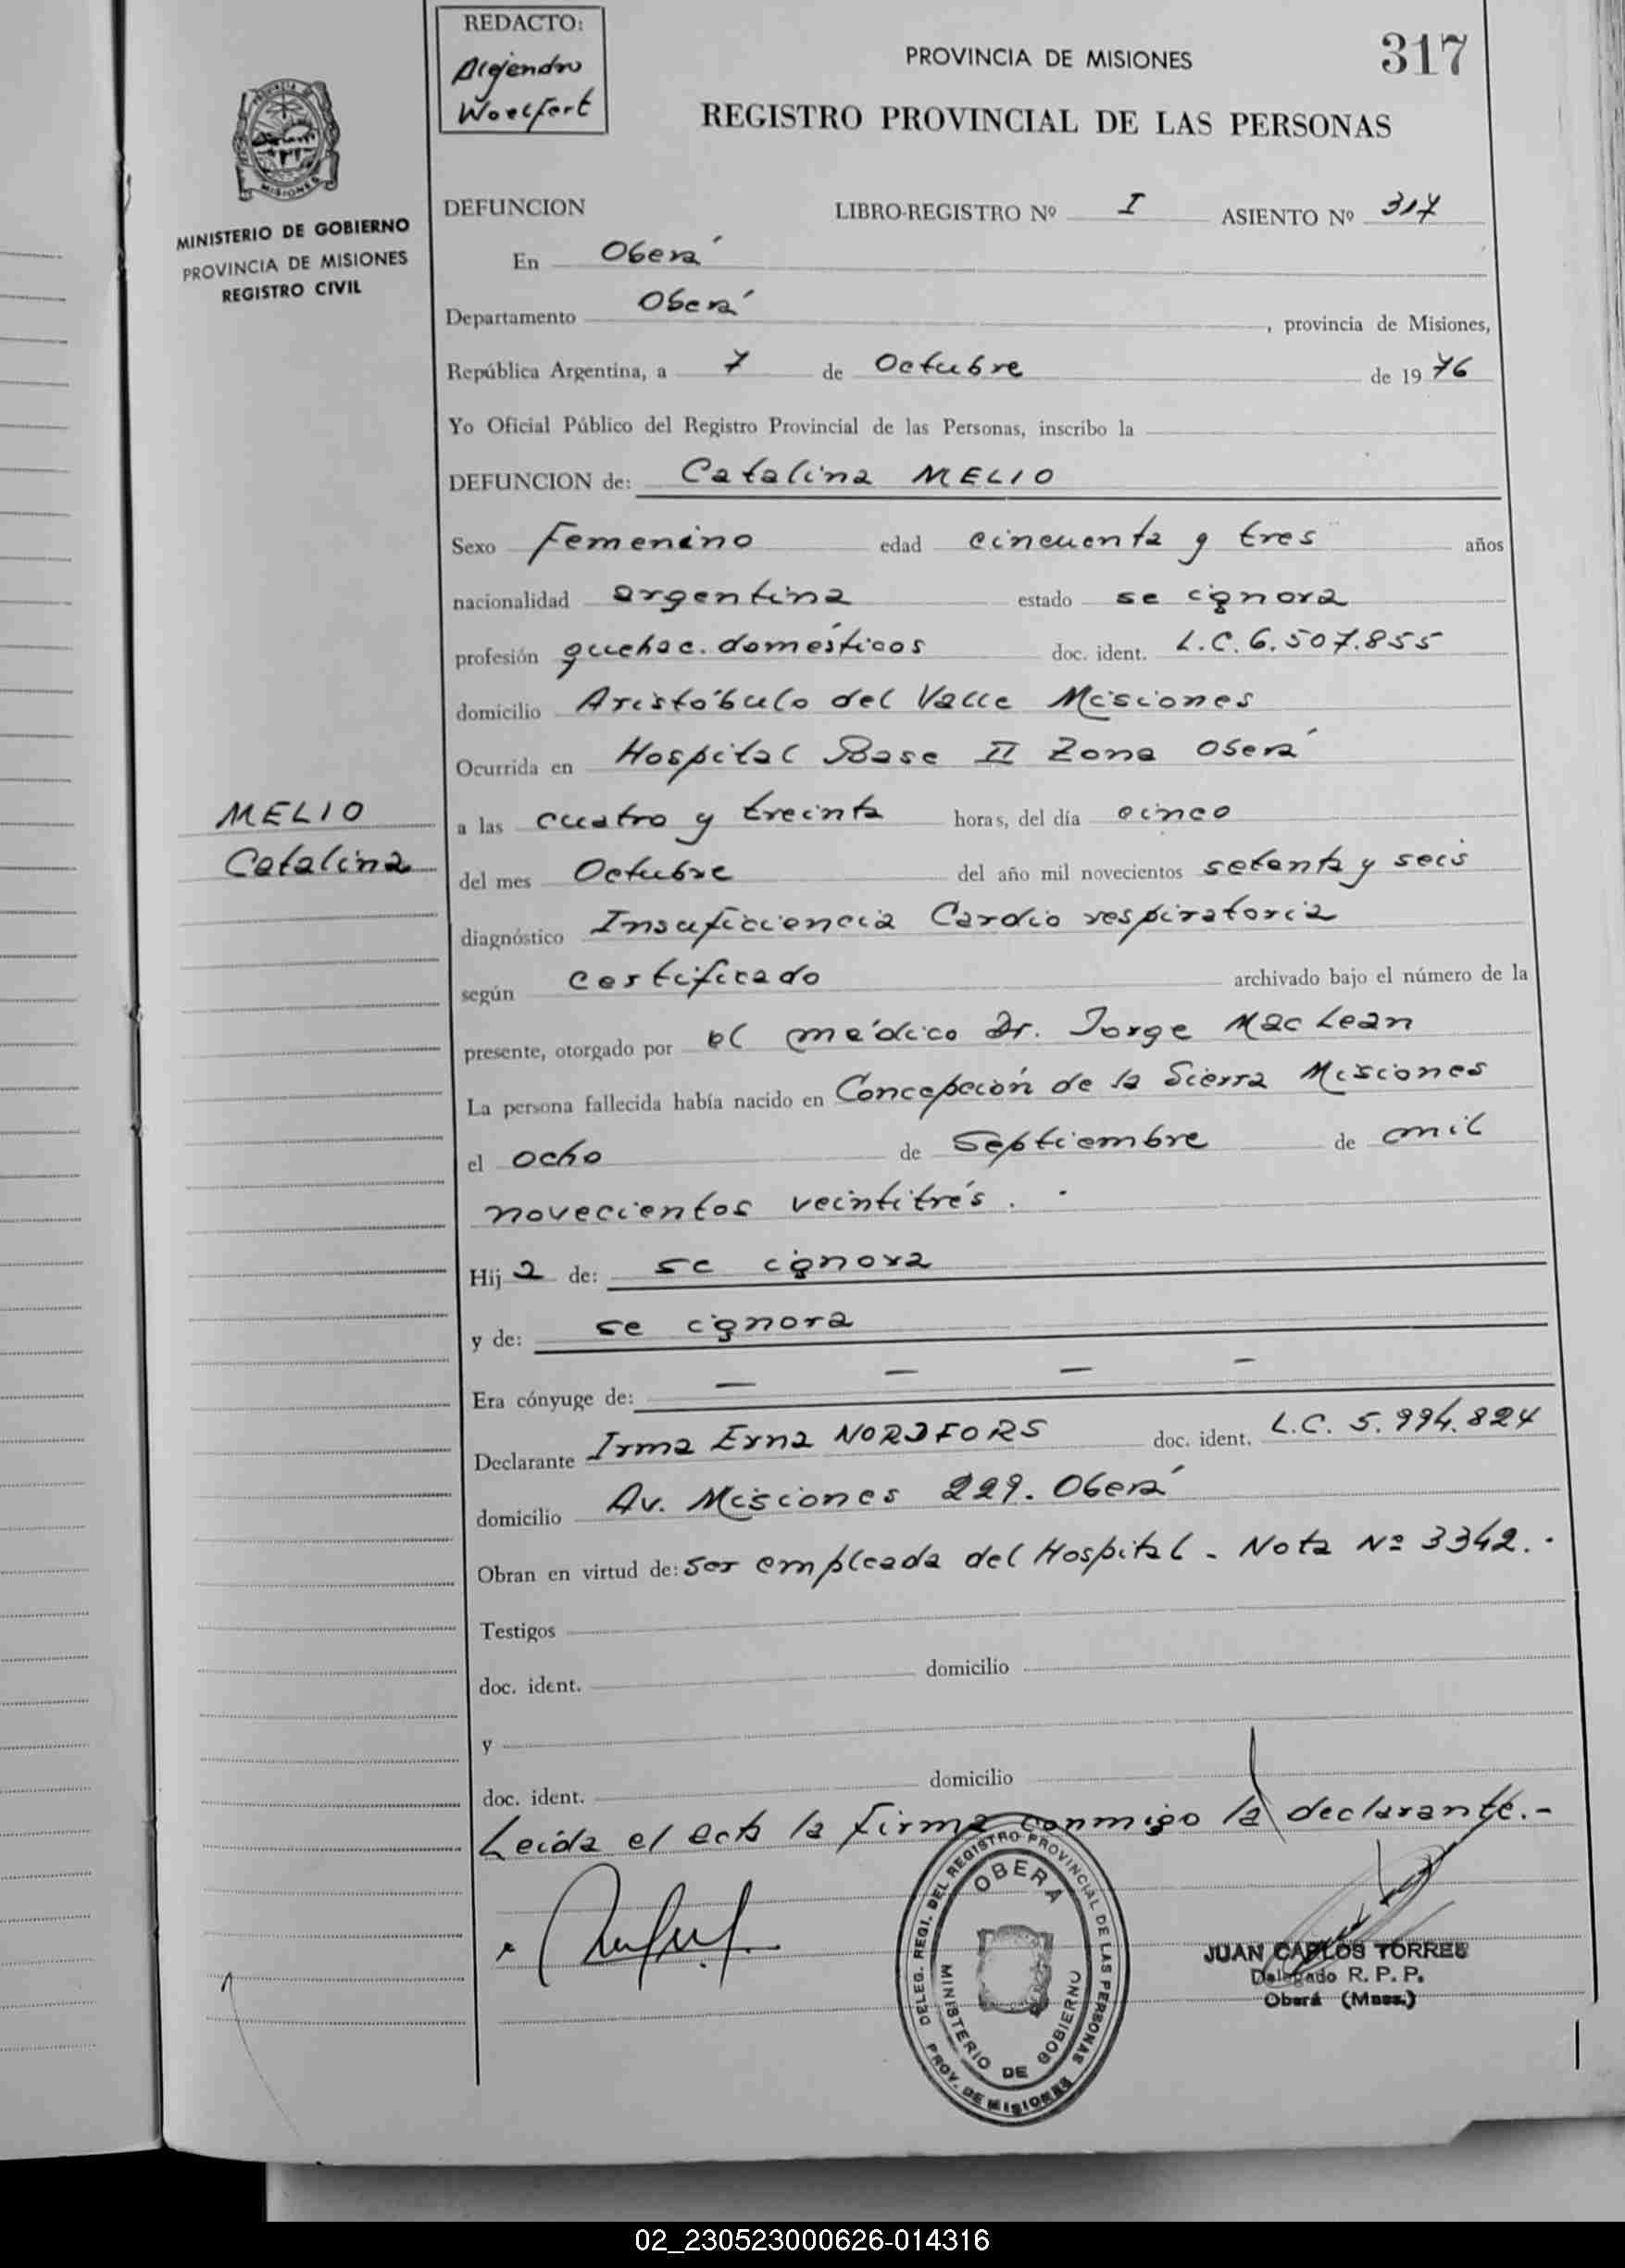 REDACTO:
Alejandro
Woelfert
PROVINCIA DE MISIONES
317
REGISTRO PROVINCIAL DE LAS PERSONAS
MISIONES
MINISTERIO DE GOBIERNO
PROVINCIA DE MISIONES
REGISTRO CIVIL
DEFUNCION LIBRO-REGISTRO Nº I ASIENTO Nº 317
En Oberá
Departamento Oberá, provincia de Misiones,
República Argentina, a 7 de Octubre de 1976
Yo Oficial Público del Registro Provincial de las Personas, inscribo la
DEFUNCION de: Catalina MELIO
Sexo Femenino edad cincuenta y tres años
nacionalidad argentina estado se ignora
profesión quehac. domésticos doc. ident. L.C. 6.507.855
domicilio Aristóbulo del Valle Misiones
Ocurrida en Hospital Base II Zona Oberá
MELIO
Catalina
a las cuatro y treinta horas, del día cinco
del mes Octubre del año mil novecientos setenta y seis
diagnóstico Insuficiencia Cardio respiratoria
según certificado archivado bajo el número de la
presente, otorgado por el médico Dr. Jorge Mac Lean
La persona fallecida había nacido en Concepción de la Sierra Misiones
el ocho de Septiembre de mil
novecientos veintitrés. -
Hija de: se ignora
y de: se ignora
Era cónyuge de: — — — —
Declarante Irma Erna NORDFORS doc. ident. L.C. 5.994.824
domicilio Av. Misiones 229. Oberá
Obran en virtud de: ser empleada del Hospital - Nota Nº 3342. -
Testigos
doc. ident. domicilio
y
doc. ident. domicilio
Leída el acta la firma conmigo la declarante. -
DELEG. REGI. DEL REGISTRO PROVINCIAL DE LAS PERSONAS
OBERA
MINISTERIO DE GOBIERNO
PROV. DE MISIONES
JUAN CARLOS TORRES
Delegado R. P. P.
Oberá (Mnes.)
02_230523000626-014316